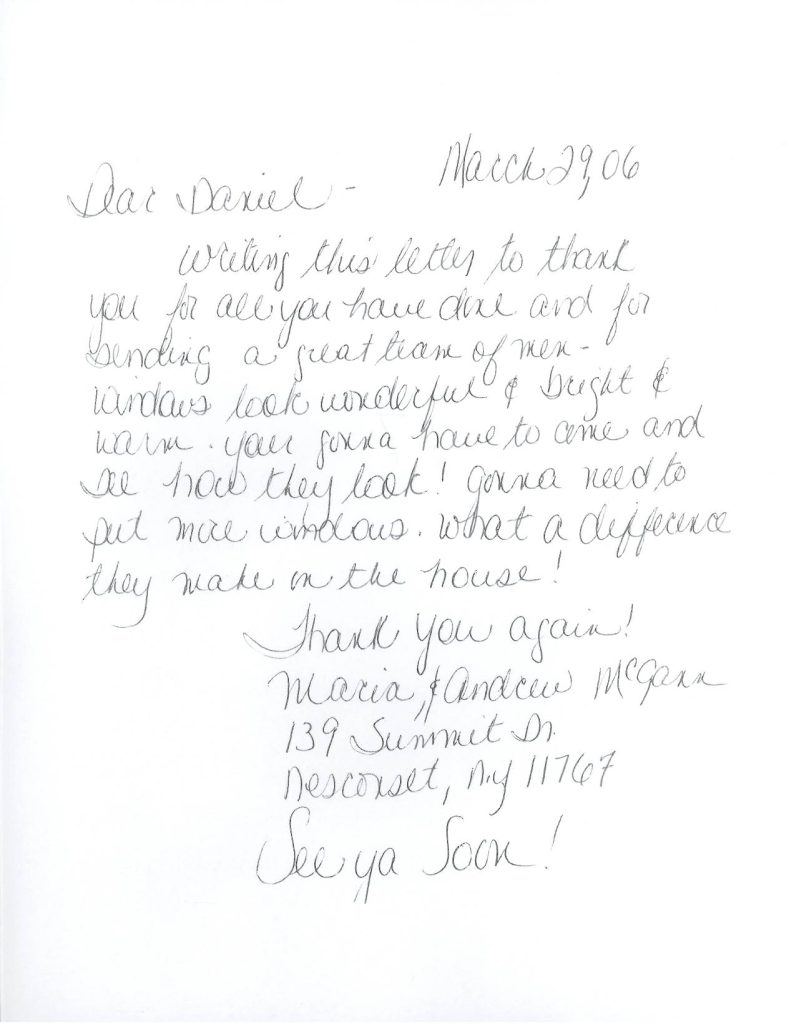 March 29, 06
Dear Daniel -
writing this letter to thank
you for all you have done and for
sending a great team of men -
windows look wonderful & bright &
warm. your gonna have to come and
see how they look! gonna need to
put more windows. what a difference
they make in the house!
Thank you again!
Maria, & Andrew McGann
139 Summit Dr.
Nesconset, Ny 11767
See ya Soon!